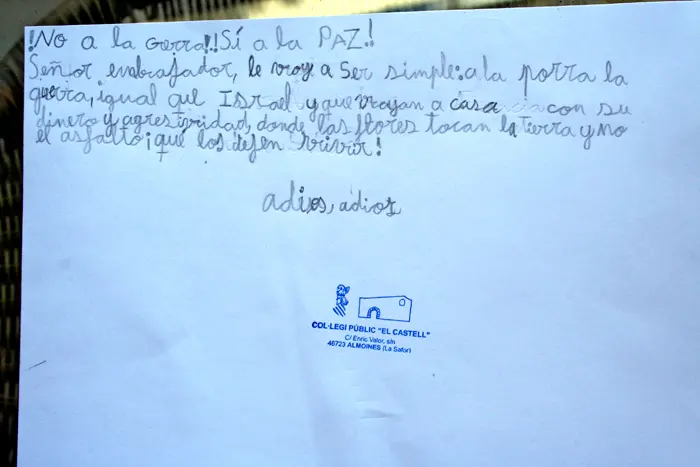 ¡No a la Gerra!¡Sí a la PAZ!
Señor enbrajador, le vroy a ser simple: a la porra la
guerra, igual que Israel y que vrayan a casa con su
dinero y agresividad, donde las flores tocan la tierra y no
el asfalto ¡qué los dejen vrivir!
adios, adios
COL·LEGI PÚBLIC "EL CASTELL"
C/ Enric Valor, s/n
46723 ALMOINES (La Safor)